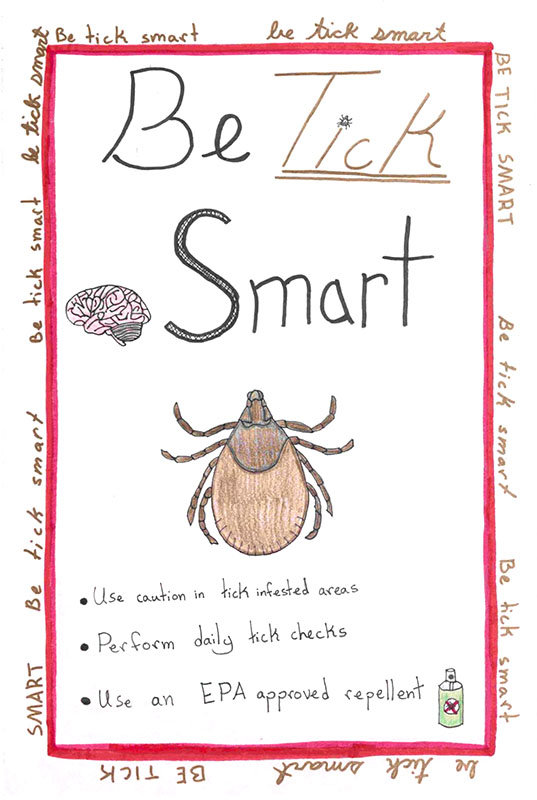 Be tick smart be tick smart
Be Tick
Smart
• Use caution in tick infested areas
• Perform daily tick checks
• Use an EPA approved repellent
BE TICK SMART
Be tick smart
Be tick smart
be tick smart
BE TICK
SMART
Be tick smart
Be tick smart
be tick smart